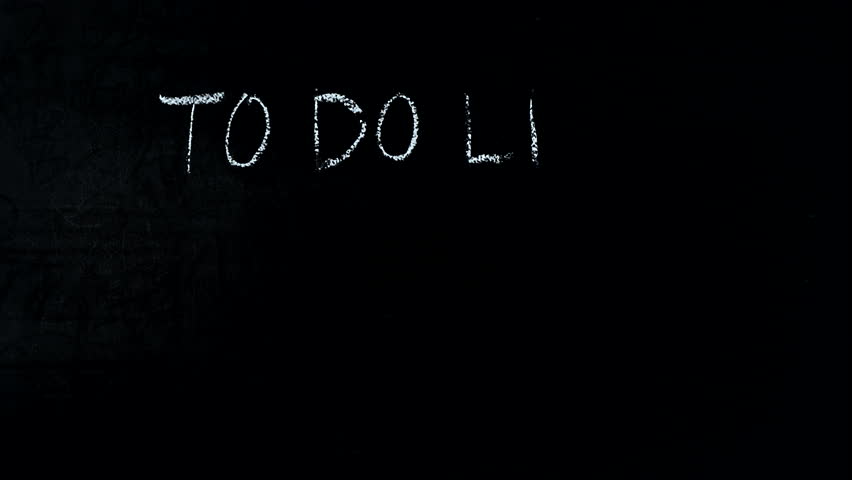 TO DO LI